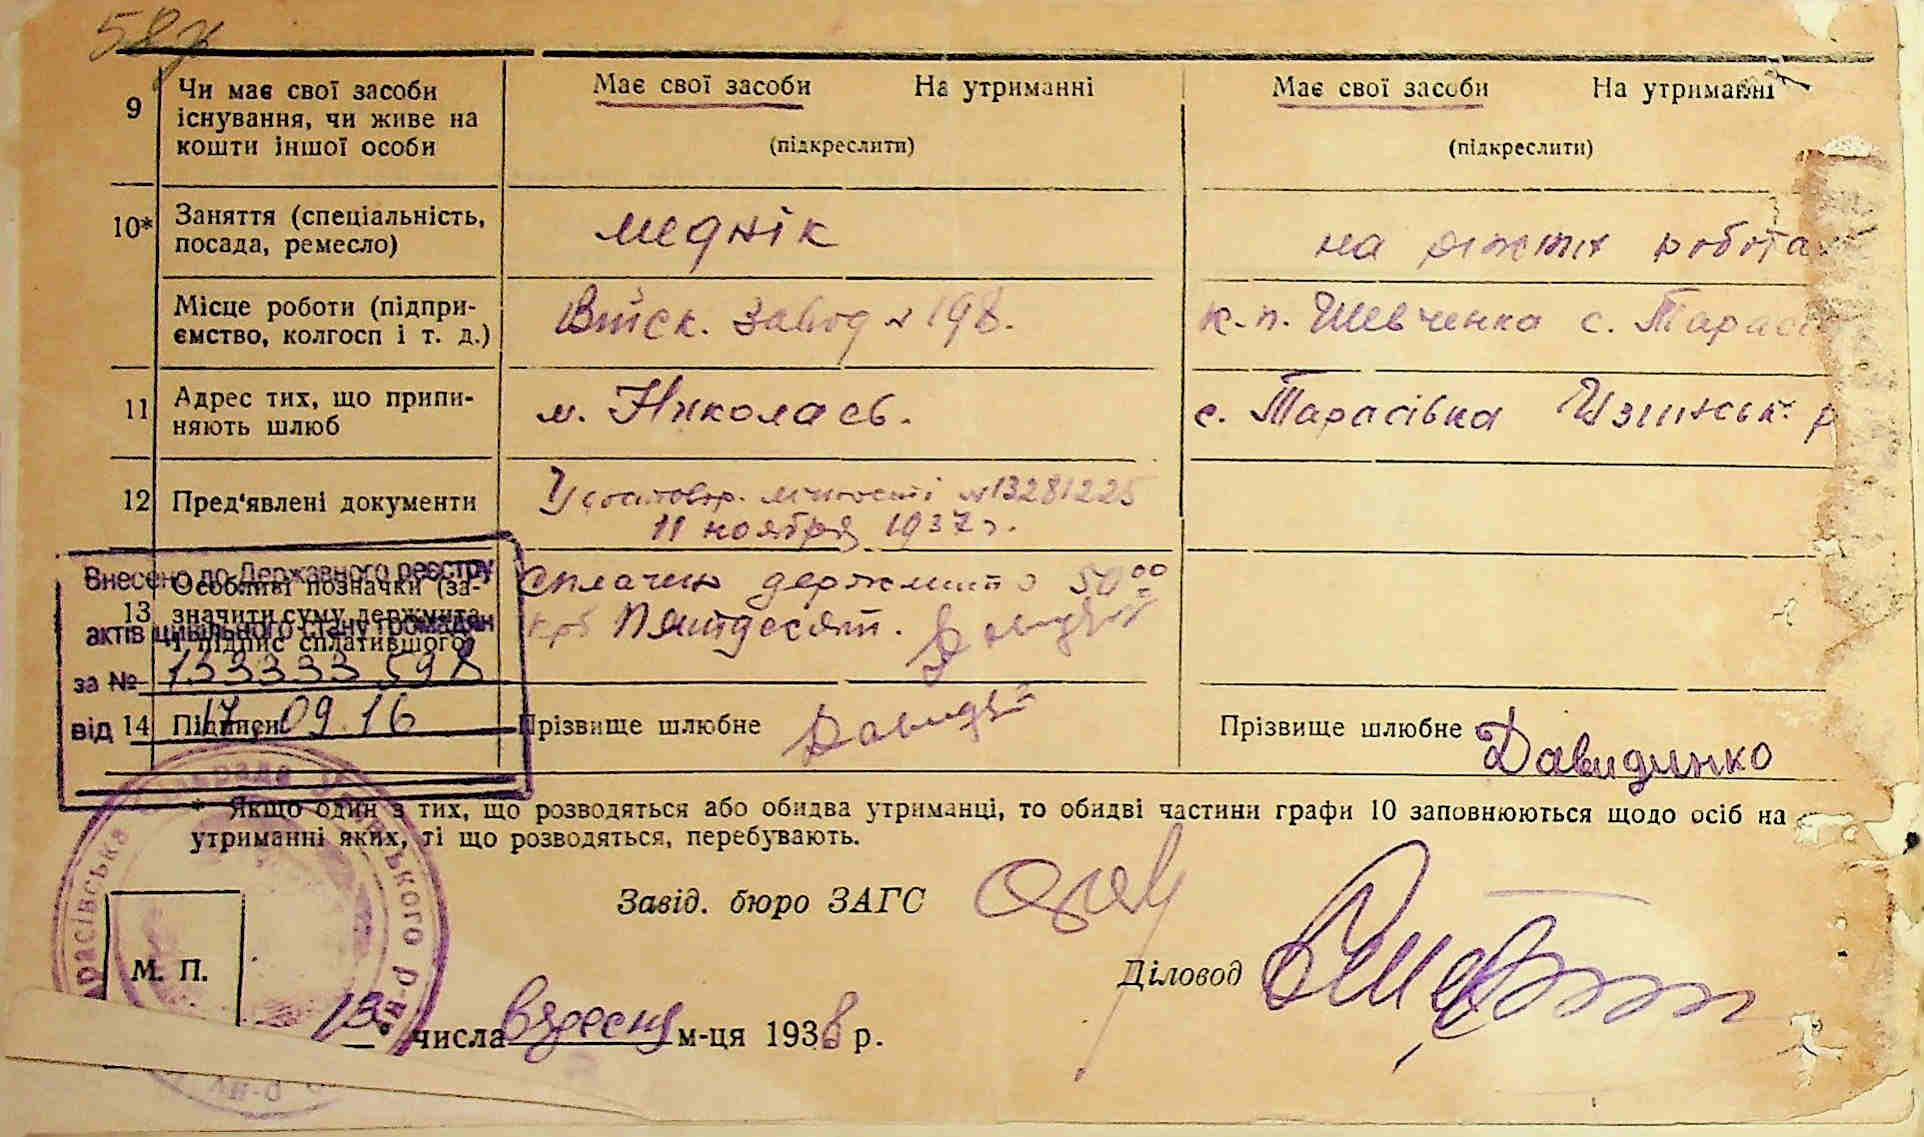 58
9 Чи має свої засоби існування, чи живе на кошти іншої особи
Має свої засоби На утриманні
(підкреслити)
Має свої засоби На утриманні
(підкреслити)
10* Заняття (спеціальність, посада, ремесло)
меднік
на ріжних робота
Місце роботи (підприємство, колгосп і т. д.)
Війск. завод № 198.
к.п. Шевченка с. Тарас
11 Адрес тих, що припиняють шлюб
м. Николаєв.
с. Тарасівка
12 Пред'явлені документи
лічності №13281225
11 ноября 1937 г.
13 Особливі позначки (зазначити суму держмита і підпис сплатившого)
держмито 50 00
крб Пятдесят.
Внесено до Державного реєстру
актів цивільного стану громадян
за № 133333598
від 17.09.16
14 Підписи
Прізвище шлюбне
Прізвище шлюбне Давидинко
* Якщо один з тих, що розводяться або обидва утриманці, то обидві частини графи 10 заповнюються щодо осіб на
утриманні яких, ті що розводяться, перебувають.
Завід. бюро ЗАГС
Діловод
М. П.
13 числа вересня м-ця 1938 р.